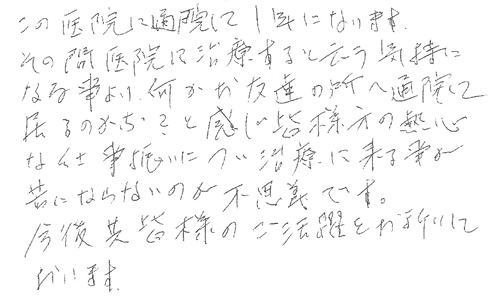 この医院に通院して1年になります。
その間医院に治療すると云う気持に
なる事より、何かお友達の所へ通院して
居るのかなごと感じ皆様方の熱心
な仕事振りについ治療に来る事が
苦にならないのが不思議です。
今後共皆様のご活躍をお祈りして
おります。